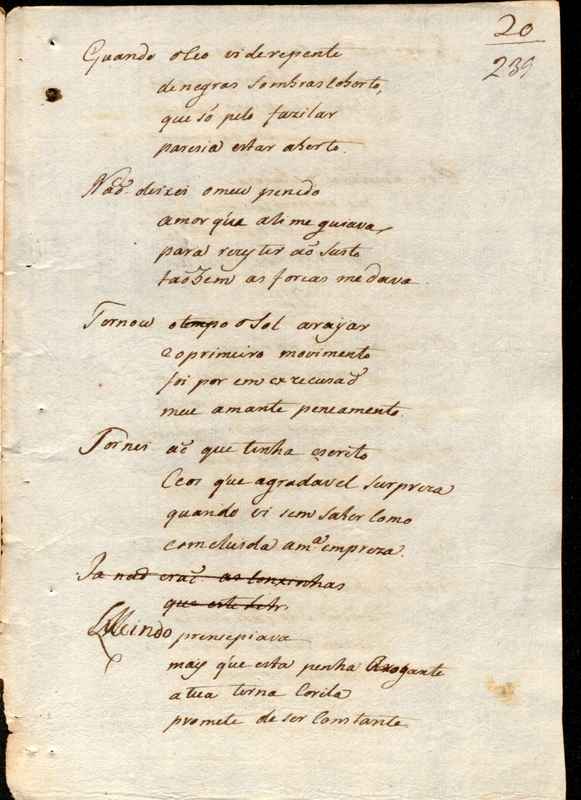 20
239
Quando o Ceo vi de repente
de negras sombras coberto,
que só pelo fuzilar
paresia estar aberto.
Naõ deixei o meu penedo
amor q'ua ali me guiava,
para rezyster ao susto
taõbem as forcas me dava.
Tornou o tempo o Sol a rayar
e o primeiro movimento
foi por em exzecusaõ
meu amante pensamento.
Tornei ao que tinha escrito
Ceos que agradavel surpreza
quando vi sem saber como
comcluida a mª empreza.
Ja naõ eraõ as
que este
Lucindo prensepiava
mays que esta penha Arogante
a tua terna Corila
promete de ser Constante